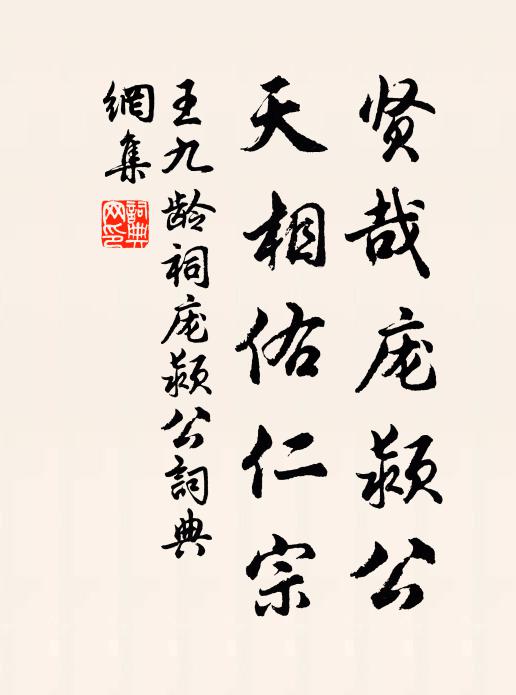 贤哉庞颍公
天相佑仁宗
王九龄祠庞颍公詞典
網集
詞典网印